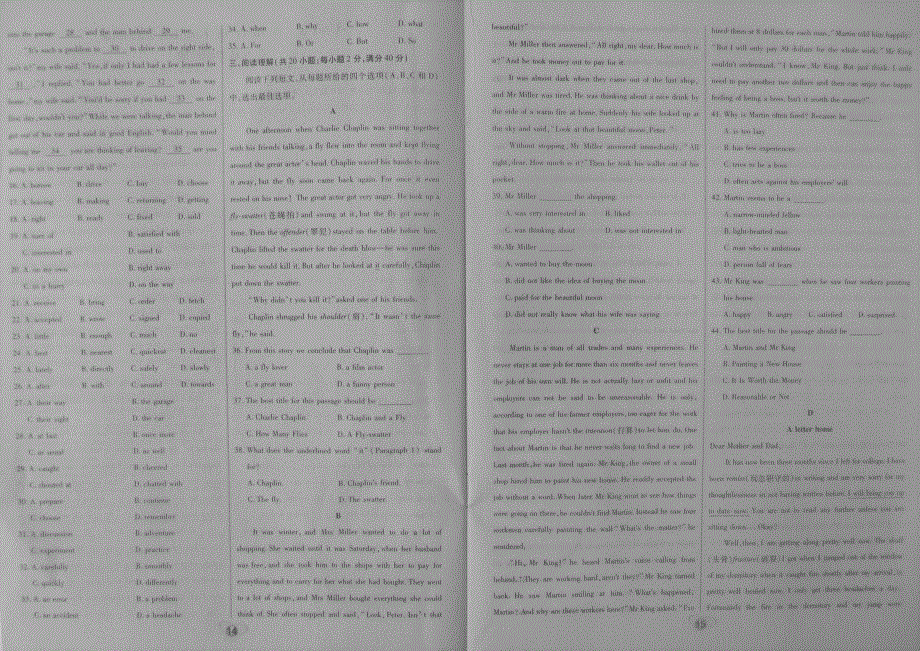 into the garage 28 and the man behind 29 me.
"It's such a problem to 30 to drive on the right side,
isn't it?" my wife said. "Yes, if only I had had a few lessons for
31 ," I replied. "You had better go 32 on the way
home," my wife said. "You'd be sorry if you had 33 on the
first day, wouldn't you?" While we were talking, the man behind
got out of his car and said in good English, "Would you mind
telling me 34 you are thinking of leaving? 35 are you
going to sit in your car all day?"
16. A. borrow B. drive C. buy D. choose
17. A. leaving B. making C. returning D. getting
18. A. right B. ready C. fixed D. sold
19. A. sure of B. satisfied with
C. interested in D. used to
20. A. on my own B. right away
C. in a hurry D. on the way
21. A. receive B. bring C. order D. fetch
22. A. accepted B. wrote C. signed D. copied
23. A. little B. enough C. much D. no
24. A. best B. nearest C. quickest D. cleanest
25. A. lately B. directly C. safely D. slowly
26. A. after B. with C. around D. towards
27. A. their way B. the garage
C. their sight D. the car
28. A. at last B. once more
C. as usual D. as well
29. A. caught B. cheered
C. shouted at D. chatted with
30. A. prepare B. continue
C. choose D. remember
31. A. discussion B. adventure
C. experiment D. practice
32. A. carefully B. smoothly
C. quickly D. differently
33. A. an error B. a problem
C. an accident D. a headache
34. A. when B. why C. how D. what
35. A. For B. Or C. But D. So
三、阅读理解(共20小题;每小题2分,满分40分)
阅读下列短文,从每题所给的四个选项(A、B、C和D)
中,选出最佳选项。
A
One afternoon when Charlie Chaplin was sitting together
with his friends talking, a fly flew into the room and kept flying
around the great actor's head. Chaplin waved his hands to drive
it away, but the fly soon came back again. For once it even
rested on his nose! The great actor got very angry. He took up a
fly-swatter(苍蝇拍) and swung at it, but the fly got away in
time. Then the offender(罪犯) stayed on the table before him.
Chaplin lifted the swatter for the death blow—he was sure this
time he would kill it. But after he looked at it carefully, Chaplin
put down the swatter.
"Why didn't you kill it?" asked one of his friends.
Chaplin shrugged his shoulder(肩), "It wasn't the same
fly," he said.
36. From this story we conclude that Chaplin was
A. a fly lover B. a film actor
C. a great man D. a funny person
37. The best title for this passage should be
A. Charlie Chaplin B. Chaplin and a Fly
C. How Many Flies D. A Fly-swatter
38. What does the underlined word "it"(Paragraph 1) stand
for?
A. Chaplin. B. Chaplin's friend.
C. The fly. D. The swatter.
B
It was winter, and Mrs Miller wanted to do a lot of
shopping. She waited until it was Saturday, when her husband
was free, and she took him to the shops with her to pay for
everything and to carry for her what she had bought. They went
to a lot of shops, and Mrs Miller bought everything she could
think of. She often stopped and said, "Look, Peter. Isn't that
14
beautiful?"
Mr Miller then answered, "All right, my dear. How much is
it?" And he took money out to pay for it.
It was almost dark when they came out of the last shop,
and Mr Miller was tired. He was thinking about a nice drink by
the side of a warm fire at home. Suddenly his wife looked up at
the sky and said, "Look at that beautiful moon, Peter."
Without stopping, Mr Miller answered immediately, "All
right, dear. How much is it?" Then he took his wallet out of his
pocket.
39. Mr Miller the shopping.
A. was very interested in B. liked
C. was thinking about D. was not interested in
40. Mr Miller
A. wanted to buy the moon
B. did not like the idea of buying the moon
C. paid for the beautiful moon
D. did not really know what his wife was saying
C
Martin is a man of all trades and many experiences. He
never stays at one job for more than six months and never leaves
the job of his own will. He is not actually lazy or unfit and his
employers can not be said to be unreasonable. He is only,
according to one of his former employers, too eager for the work
that his employer hasn't the intention(打算)to let him do. One
fact about Martin is that he never waits long to find a new job.
Last month, he was fired again. Mr King, the owner of a small
shop hired him to paint his new home. He readily accepted the
job without a word. When later Mr King went to see how things
were going on there, he couldn't find Martin. Instead he saw four
workmen carefully painting the wall. "What's the matter?" he
wondered.
"Hi, Mr King!" he heard Martin's voice calling from
behind. "They are working hard, aren't they?" Mr King turned
back. He saw Martin smiling at him. "What's happened,
Martin? And why are these workers here?" Mr King asked. "I've
hired them at 8 dollars for each man," Martin told him happily.
"But I will only pay 30 dollars for the whole work." Mr King
wouldn't understand. "I know, Mr King. But just think. I only
need to pay another two dollars and then can enjoy the happy
feeling of being a boss. Isn't it worth the money?"
41. Why is Martin often fired? Because he
A. is too lazy
B. has few experiences
C. tries to be a boss
D. often acts against his employers' will
42. Martin seems to be a
A. narrow-minded fellow
B. light-hearted man
C. man who is ambitious
D. person full of fears
43. Mr King was when he saw four workers painting
his house
A. happy B. angry C. satisfied D. surprised
44. The best title for the passage should be
A. Martin and Mr King
B. Painting a New House
C. It Is Worth the Money
D. Reasonable or Not
D
A letter home
Dear Mother and Dad,
It has now been three months since I left for college. I have
been remiss in writing and am very sorry for my
thoughtlessness in not having written before. I will bring you up
to date now. You are not to read any further unless you are
sitting down... Okay?
Well then, I am getting along pretty well now. The skull
I got when I jumped out of the window
of my dormitory when it caught fire shortly after my arrival, is
pretty well healed now. I only get those headaches a day.
Fortunately the fire in the dormitory and my jump were
15